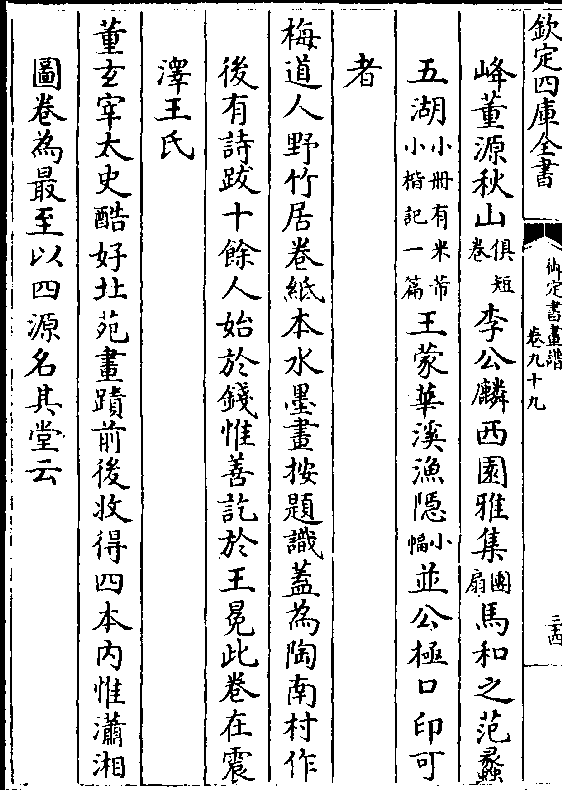 欽定四庫全書
御定書畫譜
卷九十九
三十四
峰董源秋山俱短卷李公麟西園雅集團扇馬和之范蠡
五湖小冊有米芾小楷記一篇王蒙華溪漁隱小幅並公極口印可
者
梅道人野竹居卷紙本水墨畫按題識蓋為陶南村作
後有詩跋十餘人始於錢惟善訖於王冕此卷在震
澤王氏
董玄宰太史酷好北苑畫蹟前後收得四本内惟瀟湘
圖卷為最至以四源名其堂云